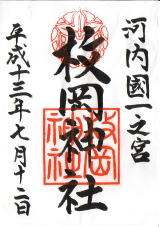 河内國一之宮
枚岡神社
平成十三年七月十二日
枚岡
神社